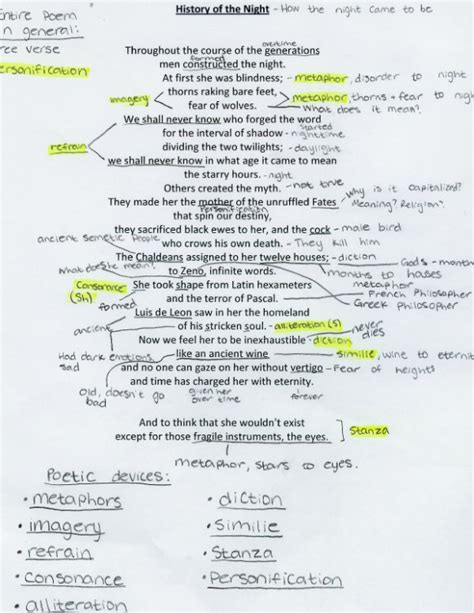 History of the Night - How the night came to be
Entire Poem
in general:
free verse
Personification
overtime
Throughout the course of the generations
formed
men constructed the night.
At first she was blindness; - metaphor, disorder to night
imagery
thorns raking bare feet, metaphor, thorns + fear to night
fear of wolves. What does it mean?
We shall never know who forged the word
started
for the interval of shadow - nighttime
refrain
dividing the two twilights; - daylight
we shall never know in what age it came to mean
the starry hours. - night
Others created the myth. - not true
Why is it capitalized?
They made her the mother of the unruffled Fates Meaning? Religion?
Personification
that spun our destiny,
they sacrificed black ewes to her, and the cock - male bird
ancient semetic people
who crows his own death. - They kill him
The Chaldeans assigned to her twelve houses; - diction
Gods - months
What does she mean?
to Zeno, infinite words. months to houses
metaphor
Consonance (Sh)
She took shape from Latin hexameters French Philosopher
formed
and the terror of Pascal. Greek Philosopher
Luis de Leon saw in her the homeland
ancient
of his stricken soul. - alliteration (S)
never dies
Now we feel her to be inexhaustible - diction
Had dark emotions, sad
like an ancient wine - Similie, wine to eternity
and no one can gaze on her without vertigo - Fear of heights
and time has charged her with eternity.
Old, doesn't go bad
given her over time
forever
And to think that she wouldn't exist
except for those fragile instruments, the eyes.
Stanza
metaphor, stars to eyes.
Poetic devices:
• metaphors
• imagery
• refrain
• consonance
• alliteration
• diction
• Similie
• Stanza
• Personification